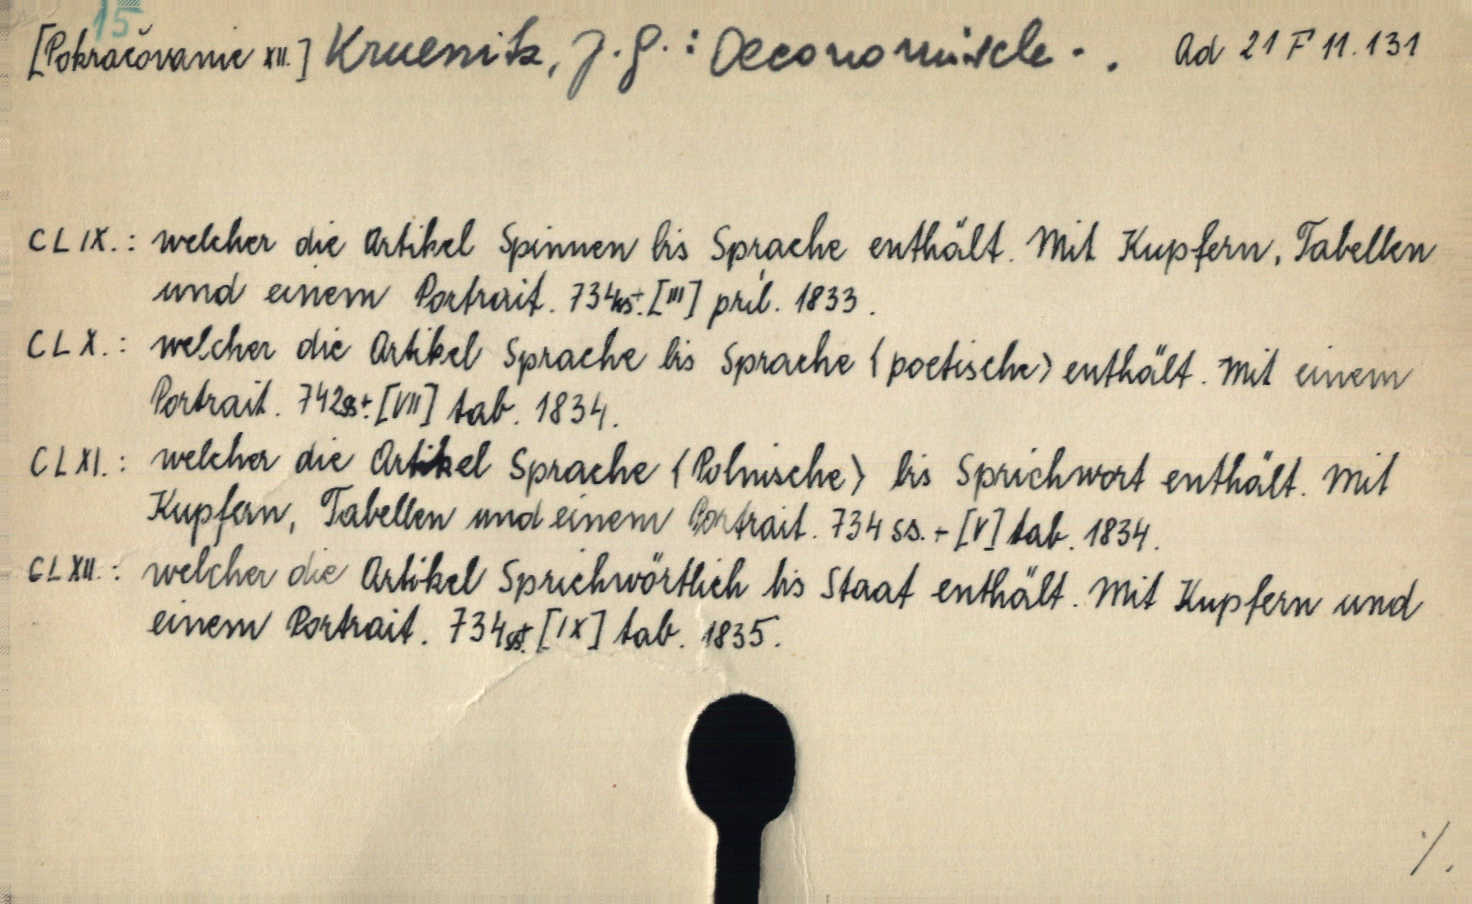 15
[Pokračovanie XII.] Kruenitz, J. G.: Oeconomische. . Ad 21 F 11.131
CLIX.: welcher die Artikel Spinnen bis Sprache enthält. Mit Kupfern, Tabellen
und einem Portrait. 734 ss.+[III] príl. 1833.
CLX.: welcher die Artikel Sprache bis Sprache (poetische) enthält. Mit einem
Portrait. 742 ss.+[VII] tab. 1834.
CLXI.: welcher die Artikel Sprache (Polnische) bis Sprichwort enthält. Mit
Kupfern, Tabellen und einem Portrait. 734 ss. + [V] tab. 1834.
CLXII.: welcher die Artikel Sprichwörtlich bis Staat enthält. Mit Kupfern und
einem Portrait. 734 ss.+[IX] tab. 1835.
./.